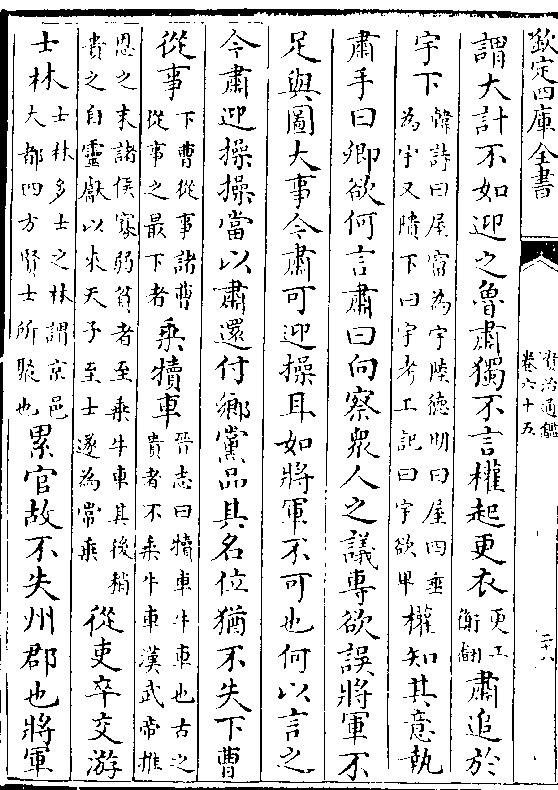 欽定四庫全書
資治通鑑
卷六十五
二十八
謂大計不如迎之魯肅獨不言權起更衣更工衡翻肅追於
宇下韓詩曰屋霤為宇陸德明曰屋四垂為宇又曰宇考工記曰宇欲卑權知其意執
肅手曰卿欲何言肅曰向察衆人之議專欲誤將軍不
足與圖大事今肅可迎操耳如將軍不可也何以言之
今肅迎操操當以肅還付鄉黨品其名位猶不失下曹
從事下曹從事諸曹從事之最下者乘犢車晉志曰犢車牛車也古之貴者不乘牛車漢武帝推
恩之末諸侯寡弱貧者至乘牛車其後稍貴之自靈獻以來天子至士遂為常乘從吏卒交游
士林士林多士之林謂京邑大都四方賢士所聚也累官故不失州郡也將軍